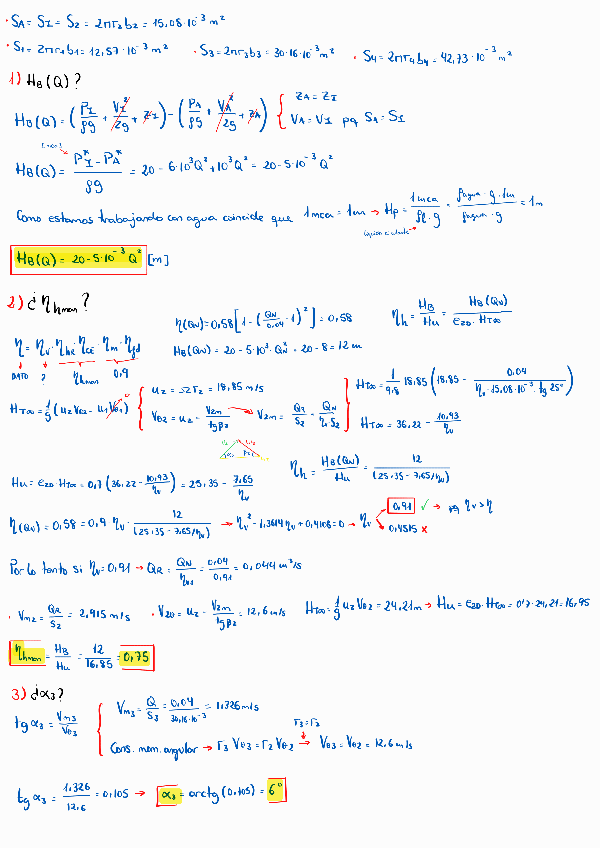 · SA = SI = S2 = 2πr2b2 = 15,08·10⁻³ m²
· S1 = 2πr1b1 = 12,57·10⁻³ m² · S3 = 2πr3b3 = 30,16·10⁻³ m² · S4 = 2πr4b4 = 42,73·10⁻³ m²
1) HB(Q)?
HB(Q) = (PI/ρg + VI²/2g + zI) - (PA/ρg + VA²/2g + zA) { zA = zI
VA = VI pq SA = SI
HB(Q) = (PI* - PA*)/ρg = 20 - 6·10³Q² + 10³Q² = 20 - 5·10⁻³Q²
Como estamos trabajando con agua coincide que 1mca = 1m → Hp = 1mca/ρl·g = ρagua·g·1m/ρagua·g = 1m
HB(Q) = 20 - 5·10⁻³ Q² [m]
2) ¿ηhman?
η(QN) = 0,58[1 - (QN/0.04 - 1)²] = 0,58 ηh = HB/Hu = HB(QN)/e2D·HT∞
η = ηv·ηhR·ηCE·ηm·ηfd HB(QN) = 20 - 5·10³·QN² = 20 - 8 = 12 m
DATO ? ηhman 0,9
HT∞ = 1/g (u2Vθ2 - u1Vθ1) { u2 = Ωr2 = 18,85 m/s
Vθ2 = u2 - V2m/tgβ2 → V2m = QR/S2 = QN/ηv S2
HT∞ = 1/9,8 18,85 (18,85 - 0,04/ηv·15,08·10⁻³·tg 25°)
HT∞ = 36,22 - 10,93/ηv
Hu = e2D·HT∞ = 0,7 (36,22 - 10,93/ηv) = 25,35 - 7,65/ηv ηh = HB(QN)/Hu = 12/(25,35 - 7,65/ηv)
η(QN) = 0,58 = 0,9 ηv · 12/(25,35 - 7,65/ηv) → ηv² - 1,3614ηv + 0,4108 = 0 → ηv 0,91 ✓ → pq ηv > η
0,4515 ✗
Por lo tanto si ηv = 0,91 → QR = QN/ηv = 0,04/0,91 = 0,044 m³/s
· Vm2 = QR/S2 = 2,915 m/s · V2θ = u2 - V2m/tgβ2 = 12,6 m/s HT∞ = 1/g u2 Vθ2 = 24,21m → Hu = e2D·HT∞ = 0'7·24,21 = 16,95
ηhman = HB/Hu = 12/16,85 = 0,75
3) ¿α3?
tg α3 = Vm3/Vθ3 { Vm3 = Q/S3 = 0,04/30,16·10⁻³ = 1,326 m/s
r3 = r2
Cons. mom. angular → r3 Vθ3 = r2 Vθ2 → Vθ3 = Vθ2 = 12,6 m/s
tg α3 = 1,326/12,6 = 0,105 → α3 = arctg (0,105) = 6°